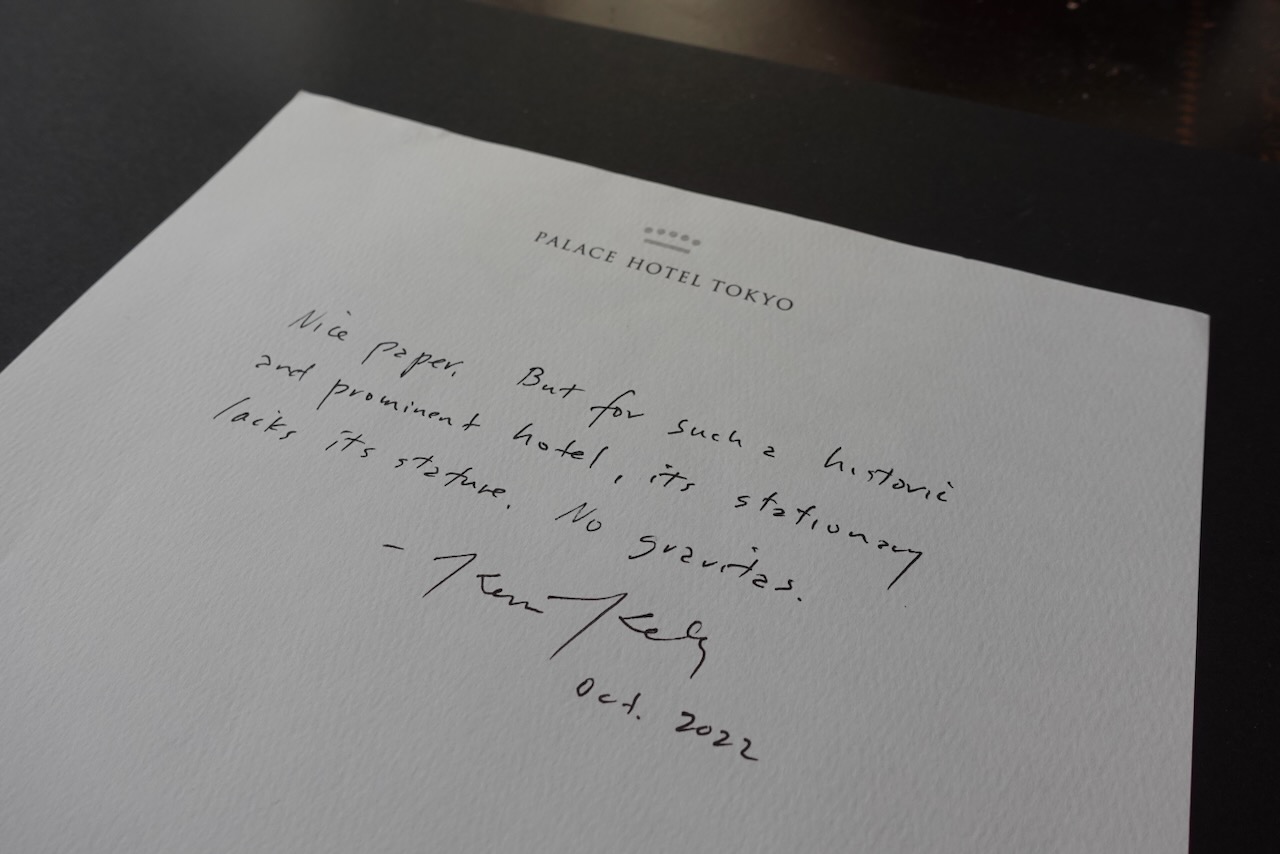 PALACE HOTEL TOKYO
Nice paper. But for such a historic
and prominent hotel, its stationary
lacks its stature. No gravitas.
- Kevin Kelly
Oct. 2022